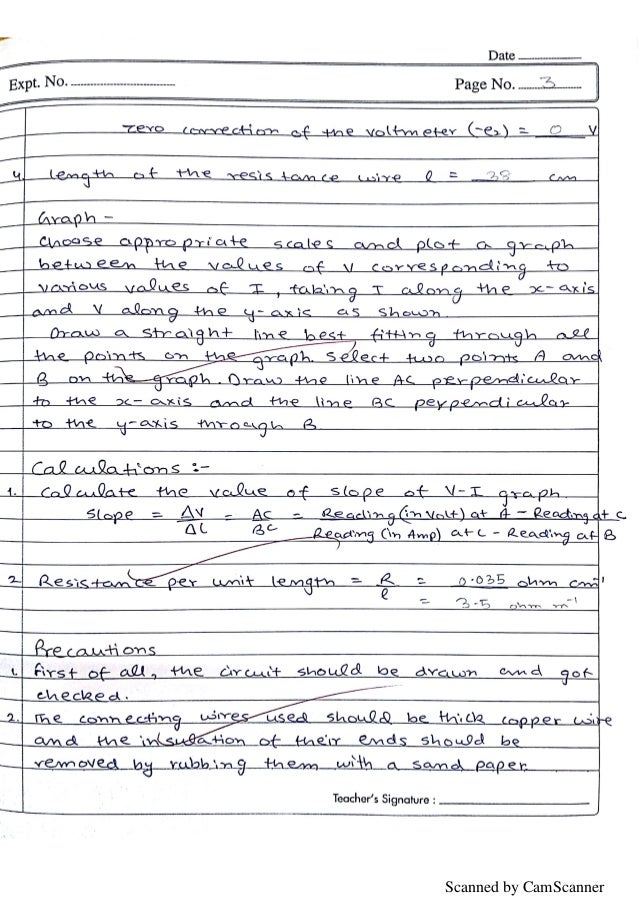 Date
Expt. No.
Page No. 3
zero correction of the voltmeter (-e₂) = 0 V
4. length of the resistance wire l = 38 cm
Graph -
Choose appropriate scales and plot a graph
between the values of V corresponding to
various values of I, taking I along the x-axis
and V along the y-axis as shown.
Draw a straight line best fitting through all
the points on the graph. Select two points A and
B on the graph. Draw the line AC perpendicular
to the x-axis and the line BC perpendicular
to the y-axis through B
Calculations :-
1. Calculate the value of slope of V-I graph.
Slope = ΔV/ΔI = AC/BC = Reading (in Volt) at A - Reading at C / Reading (in Amp) at C - Reading at B
2 Resistance per unit length = R/l = 0.035 ohm cm⁻¹
= 3.5 ohm m⁻¹
Precautions
1. first of all, the circuit should be drawn and got
checked.
2. The connecting wires used should be thick copper wire
and the insulation of their ends should be
removed by rubbing them with a sand paper.
Teacher's Signature :
Scanned by CamScanner